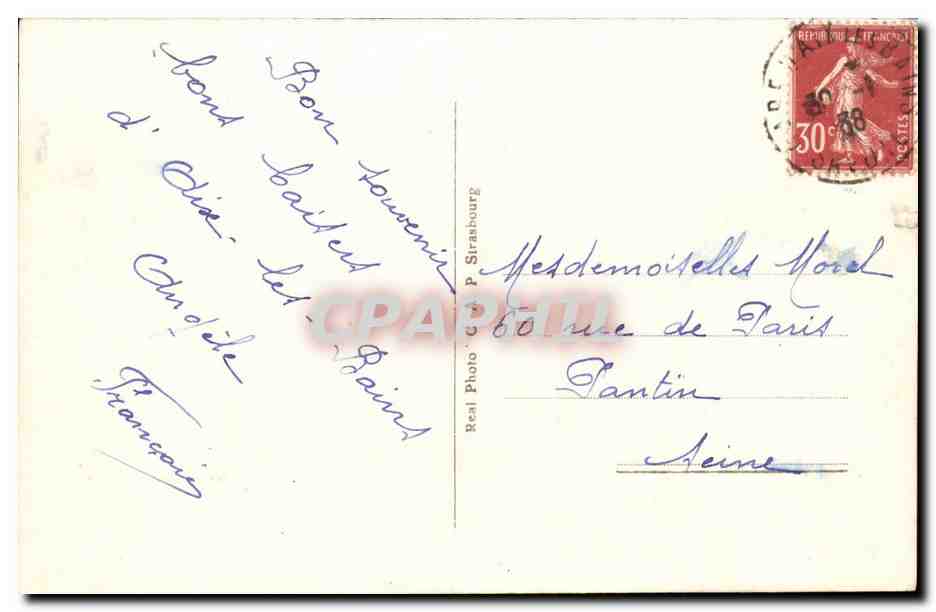 Bon souvenir
bons baisers
d'aix-les-Bains
Andèle
François
Real Photo C A P Strasbourg
REPUBLIQUE FRANÇAISE
30c
POSTES
38
Mesdemoiselles Morel
60 rue de Paris
Pantin
Seine
CPAPHIL